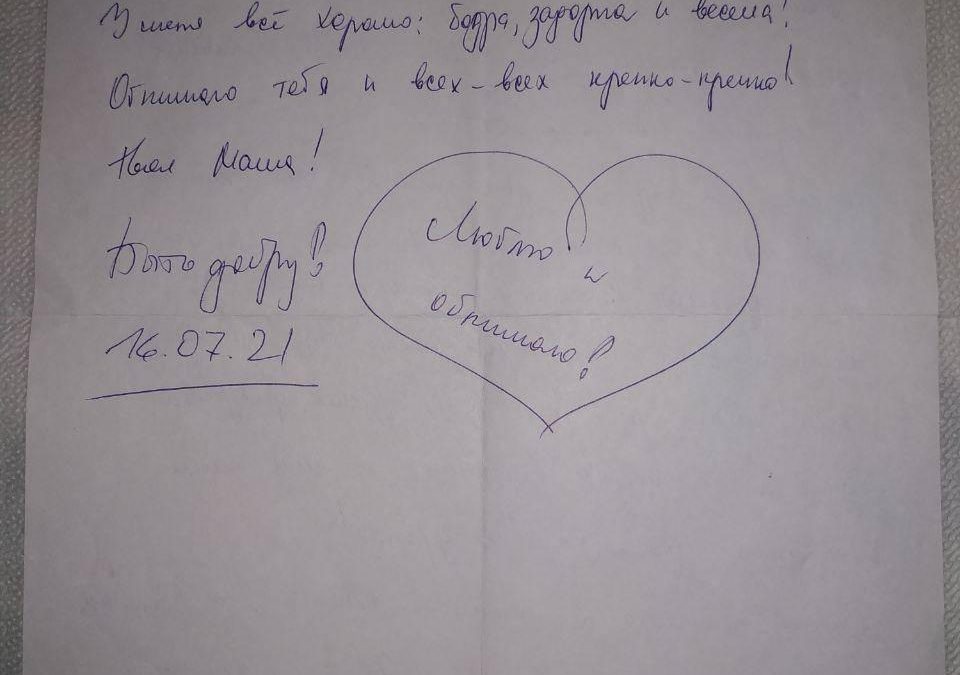 У меня всё хорошо: бодра, задорна и весела!
Обнимаю тебя и всех-всех крепко-крепко!
Маша!
Быть добру!
16.07.21
Люблю
и
обнимаю!